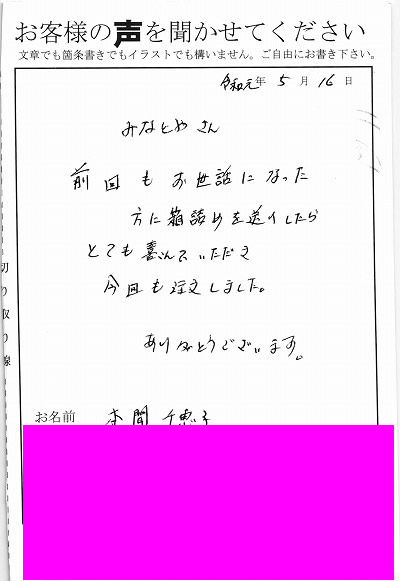 お客様の声を聞かせてください
文章でも箇条書きでもイラストでも構いません。ご自由にお書き下さい。
令和元年 5月 16日
みなとやさん
前回もお世話になった
方に箱詰めを送りしたら
とても喜んでいただき
今回も注文しました。
ありがとうございます。
切り取り線
お名前 本間千恵子